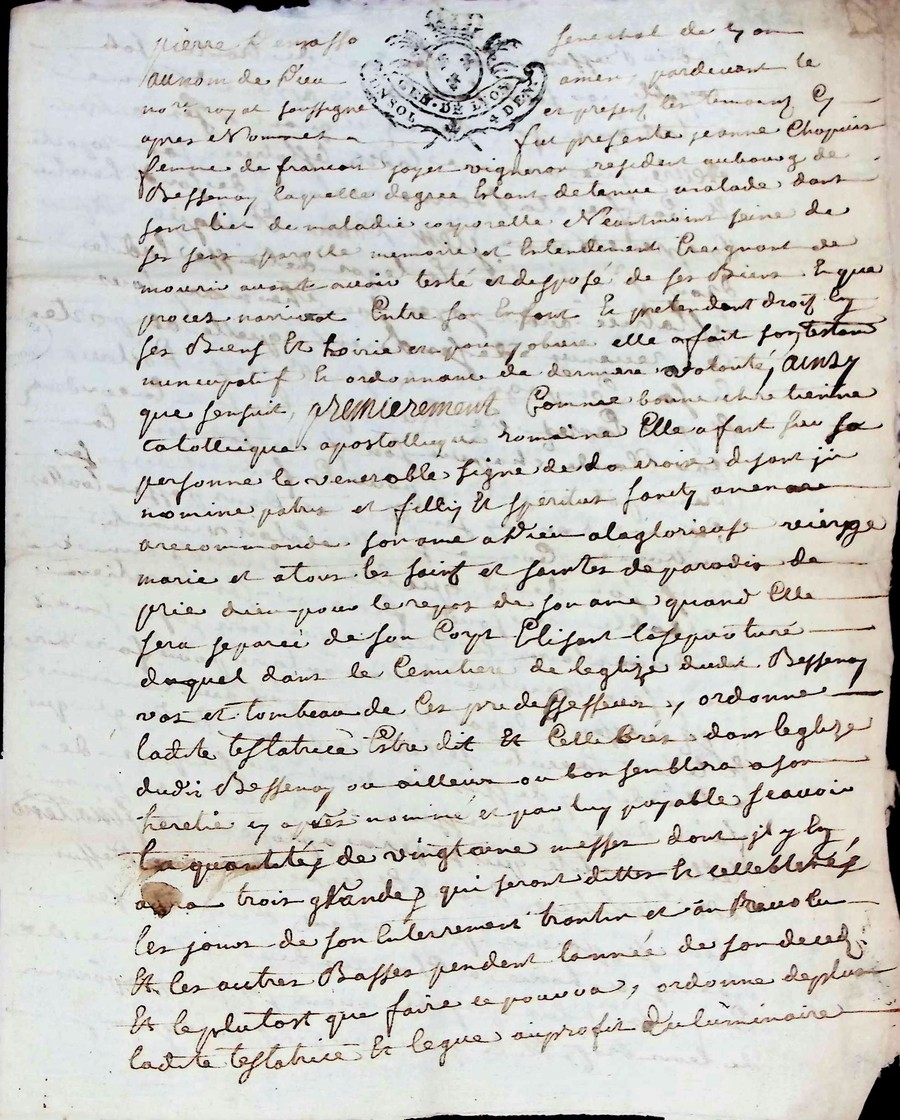 pierre senechal de Lyon
GEN. DE LYON
UN SOL 4 DEN.
au nom de Dieu amen, pardevant le
nore royal soussigne et presens les temoins Cy
apres Nommes fut presente jeanne Chopuis
femme de francois joyet vigneron resident au bourg de
Bessenay laquelle de gre Estant detenue malade dans
son lict de maladie corporelle Neantmoins seine de
ses sens parolle memoire et Entendement Creignant de
mourir avant avoir testé et desposé de ses Biens Et que
proces narrivat Entre son Enfant Et pretendent droit En
ses Biens Et hoirie et pour y obvié elle a fait son testam
nuncupatif Et ordonnance de derniere volonté, ainsy
que sensuit, premierement Comme bonne chretienne
catollique apostollique romaine Elle a fait sur sa
personne le venerable signe de la croix disant jn
nomine patris et fillij Et speritus sancty amen
a recommandé son ame a Dieu a la glorieuse vierge
marie et a tous les saints et saintes de paradis de
prie dieu pour le repos de son ame quand Elle
sera separée de son Corps Elisant la sepulture
duquel dans le Cemitiere de leglize dudit Bessenay
vas et tombeau de Ces predessesseurs, ordonne
ladite testatrice Estre dit Et Cellebrés dans leglize
dudit Bessenay ou ailleurs ou bon semblera a son
heretié cy après nommé et par luy payable scavoir
la quantités de vingtaine messes dont jl y En
aura trois grandes qui seront dittes Et cellebrés
les jours de son Enterrement trantin et au Bout de
Et les autres Basses pendent lannée de son deced
Et le plutost que faire ce pourra, ordonne de plus
ladite testatrice Et legue au profit du luminaire